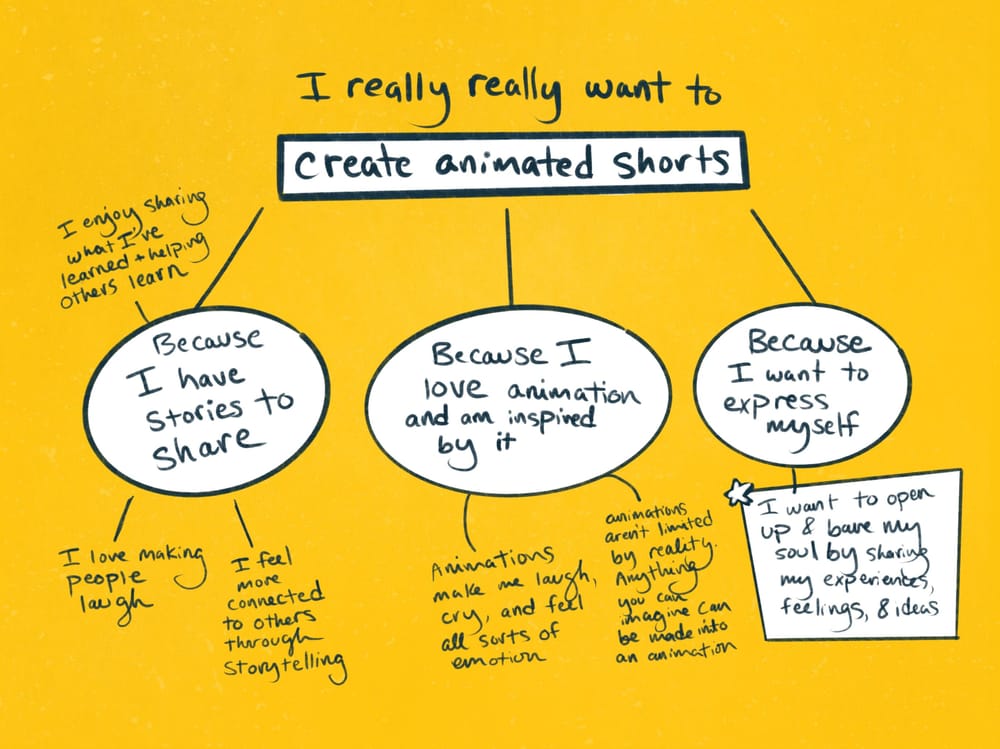 I really really want to
create animated shorts
I enjoy sharing
what I've
learned + helping
others learn
Because
I have
stories to
share
Because I
love animation
and am inspired
by it
Because
I want to
express
myself
I love making
people
laugh
I feel
more
connected
to others
through
storytelling
Animations
make me laugh,
cry, and feel
all sorts of
emotion
animations
aren't limited
by reality.
Anything
you can
imagine can
be made into
an animation
I want to open
up & bare my
soul by sharing
my experiences,
feelings, & ideas